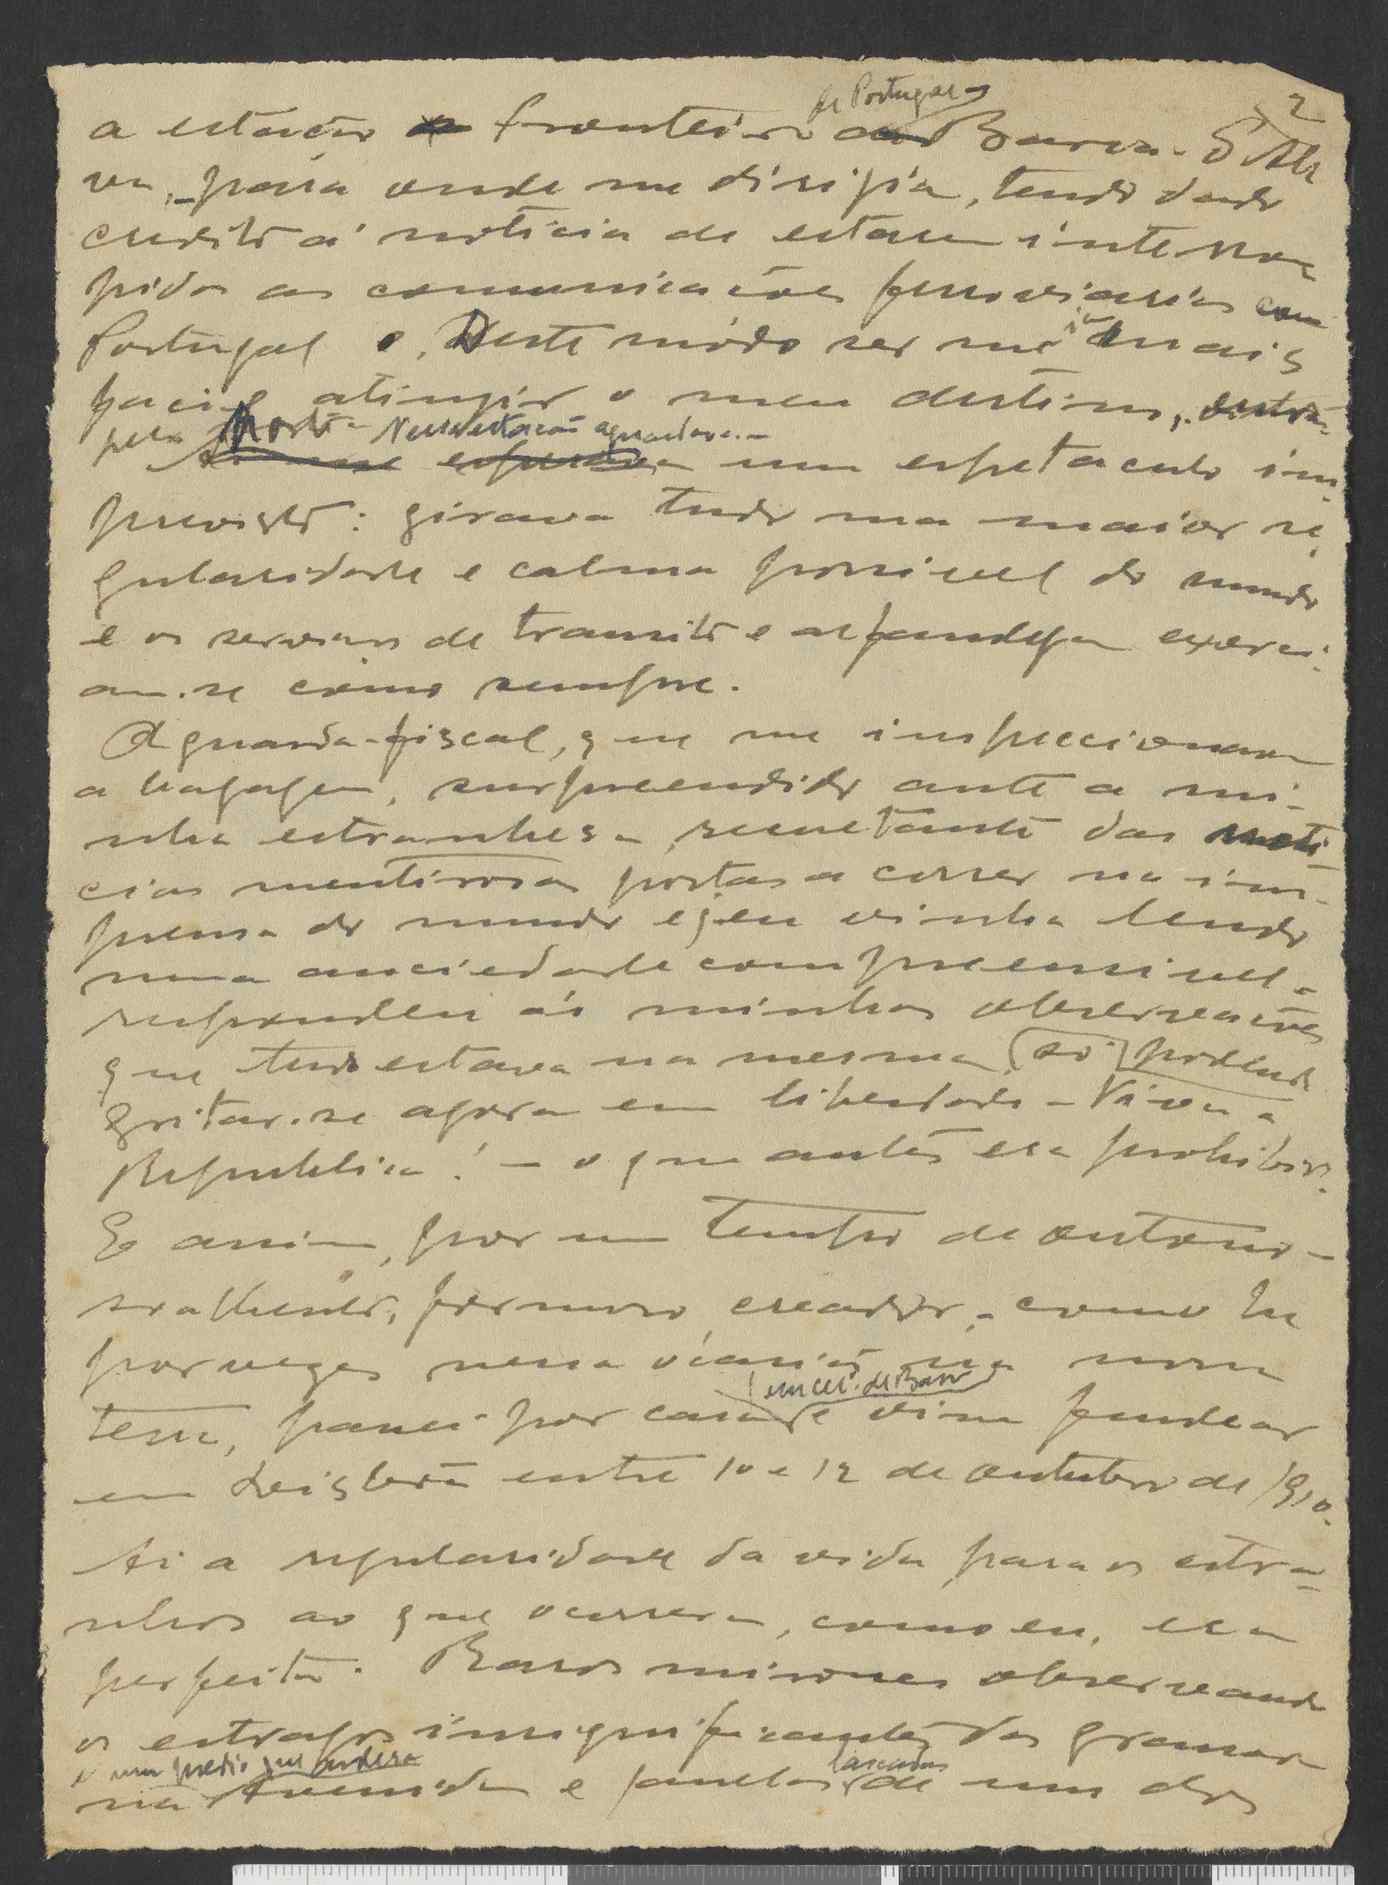 2
de Portugal
a estação fronteira Barca-d'Al
va, para onde me dirigia, tendo dado
credito á noticia de estarem interrom
pidas as comunicações ferroviarias com
Portugal, Deste módo ser me ia mais
facil atingir o meu destino, entran
pelo Norte. Nessa estação aguardava-
um espetaculo im
previsto: girava tudo na maior re
gularidade e calma possivel do mundo
e os serviços de transito e alfandega exerci
am-se como sempre.
O guarda-fiscal, que me inspeccionava
a bagagem, surpreendido ante a mi-
nha estranhesa, resultante das noti
cias mentirosas postas a correr na im-
prensa do mundo e q eu vinha lendo
numa anciedade compreensivel,
respondeu ás minhas observações
que tudo estava na mesma, só podendo
gritar-se agora em liberdade - Viva a
Republica! - o que antes era prohibido.
E assim, por um tempo de outono
soalhento, formoso, creador, como ha
por vezes nessa ocasião no norte
passei por casa e vim fundear
em Leisboa entre 10 e 12 de outubro de 1910.
Ai a regularidade da vida para os estra-
nhos ao que ocorrera, como eu, era
perfeita. Raros mirones observando
os estragos insignificantes das granadas
e um predio que ardera
na Avenida e janelas lascadas de um dos